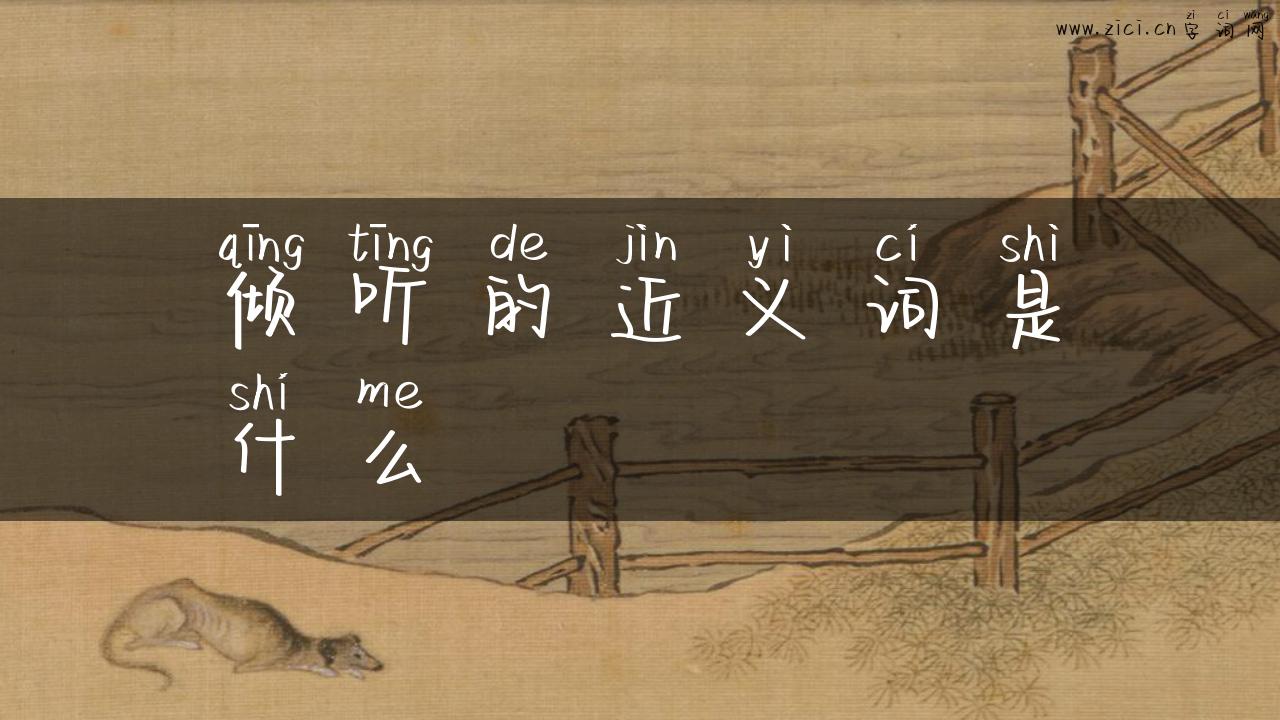 zì cí wǎng
www.zici.cn 字词网
qīng tīng de jìn yì cí shì
倾听的近义词是
shí me
什么